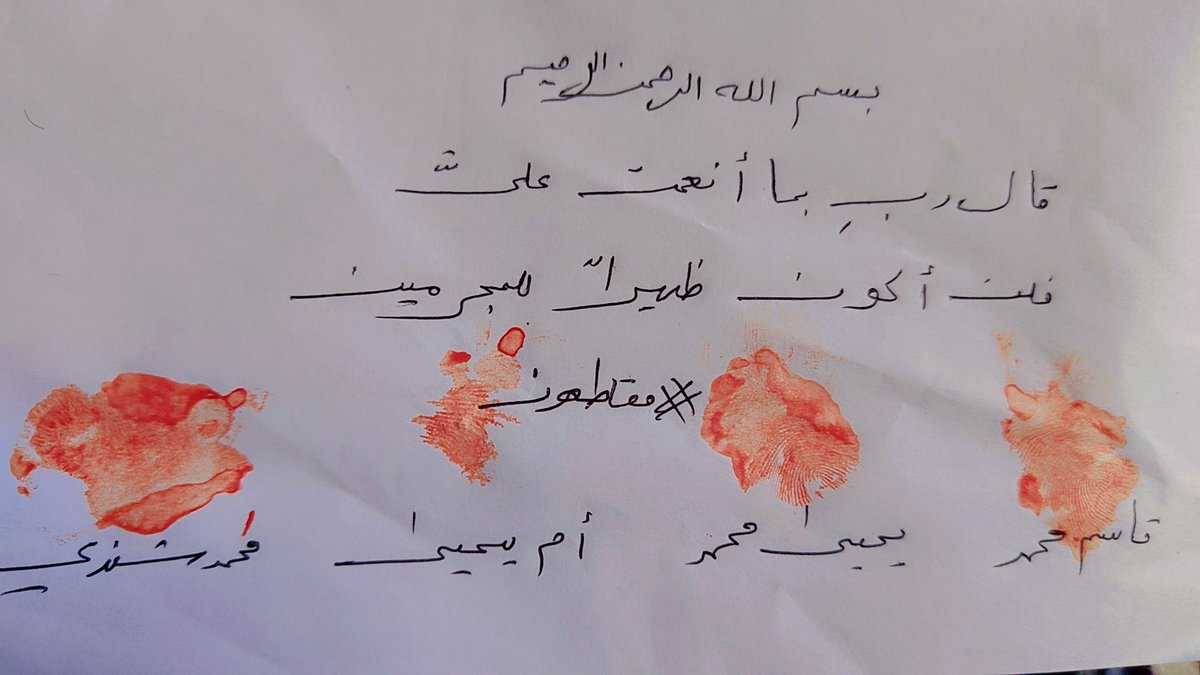 بسم الله الرحمن الرحيم
قال ربِ بما أنعمت علىّ
فلن أكون ظهيراّ للمجرمين
#مقاطعون
قاسم محمد يحيىا محمد أم يحيىا محمد شندي